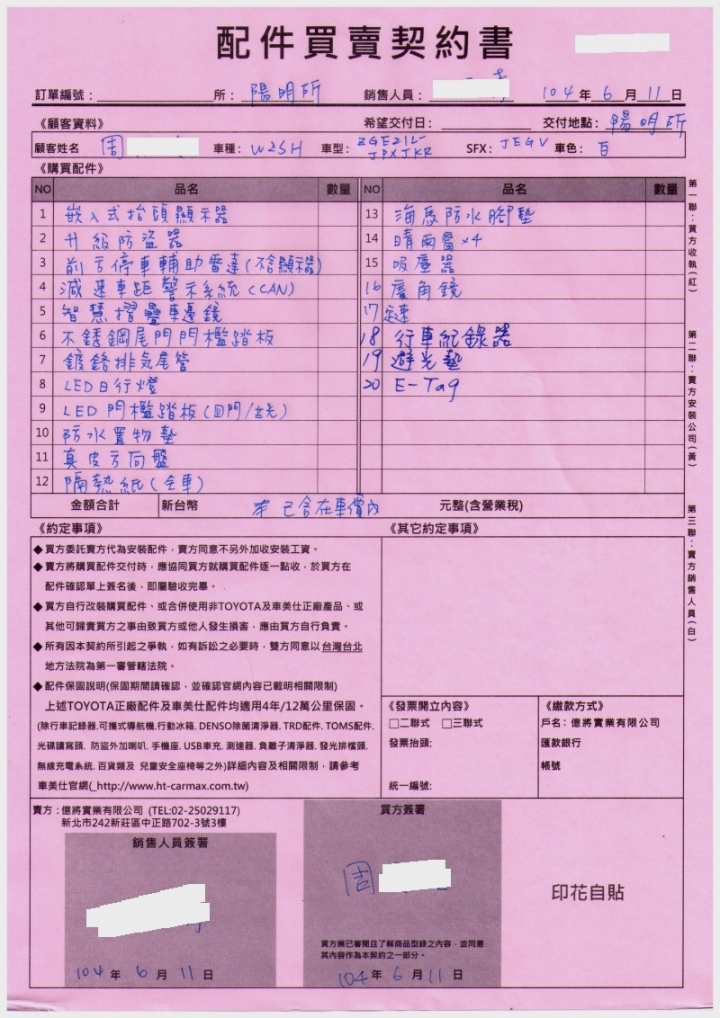 配件買賣契約書
訂單編號： 所：陽明所 銷售人員： 104年6月11日
《顧客資料》 希望交付日： 交付地點：陽明所
顧客姓名 周 車種：WISH 車型：ZGE21L- JPXJKR SFX：JEGV 車色：白
《購買配件》
NO 品名 數量 NO 品名 數量
1 嵌入式抬頭顯示器 13 海馬防水腳墊
2 升級防盜器 14 晴雨窗×4
3 前方停車輔助雷達(不含顯示器) 15 吸塵器
4 減速車距警示系統(CAN) 16 廣角鏡
5 智慧摺疊車邊鏡 17 定速
6 不銹鋼尾門門檻踏板 18 行車紀錄器
7 鍍鉻排氣尾管 19 避光墊
8 LED日行燈 20 E-Tag
9 LED門檻踏板(四門/藍光)
10 防水置物墊
11 真皮方向盤
12 隔熱紙(全車)
金額合計 新台幣 已含在車價內 元整(含營業稅)
《約定事項》 《其它約定事項》
◆買方委託賣方代為安裝配件，賣方同意不另外加收安裝工資。
◆賣方將購買配件交付時，應協同買方就購買配件逐一點收，於買方在
配件確認單上簽名後，即屬驗收完畢。
◆買方自行改裝購買配件、或合併使用非TOYOTA及車美仕正廠產品、或
其他可歸責買方之事由致買方或他人發生損害，應由買方自行負責。
◆所有因本契約所引起之爭執，如有訴訟之必要時，雙方同意以台灣台北
地方法院為第一審管轄法院。
◆配件保固說明(保固期間請確認，並確認官網內容已載明相關限制)
上述TOYOTA正廠配件及車美仕配件均適用4年/12萬公里保固。
(除行車記錄器.可攜式導航機.行動冰箱. DENSO除菌清淨器. TRD配件. TOMS配件.
光碟讀寫頭. 防盜外加喇叭. 手機座. USB車充. 測速器. 負離子清淨器. 發光排檔頭.
無線充電系統. 百貨類及 兒童安全座椅等之外)詳細內容及相關限制，請參考
車美仕官網(_http://www.ht-carmax.com.tw)
《發票開立內容》
□二聯式 □三聯式
發票抬頭:
統一編號:
《繳款方式》
戶名：億將實業有限公司
匯款銀行
帳號
賣方：億將實業有限公司 (TEL:02-25029117)
新北市242新莊區中正路702-3號3樓
銷售人員簽署
104年6月11日
買方簽署
周
買方業已審閱且了解商品型錄之內容，並同意
其內容作為本契約之一部分。
104年6月11日
印花自貼
第一聯：買方收執(紅)
第二聯：賣方安裝公司(黃)
第三聯：賣方銷售人員(白)